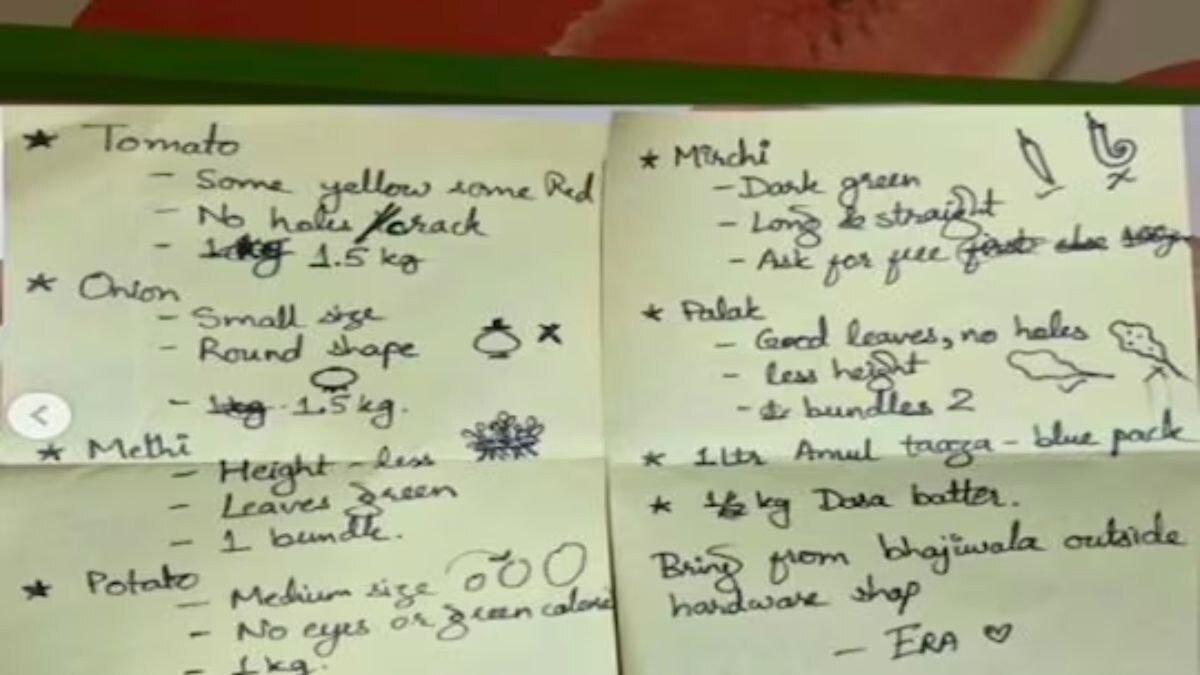 * Tomato
- Some yellow some Red
- No holes/crack
- 1kg 1.5 kg
* Onion
- Small size
- Round shape
- 1kg 1.5 kg.
* Methi
- Height - less
- Leaves green
- 1 bundle.
* Potato
- Medium size
- No eyes or green
- 1 kg.
* Mirchi
- Dark green
- Long & straight
- Ask for free
* Palak
- Good leaves, no holes
- less height
- bundles 2
* 1 Ltr Amul taaza - blue pack
* 1/2 kg Dosa batter.
Bring from bhajiwala outside
hardware shop
- ERA ♡